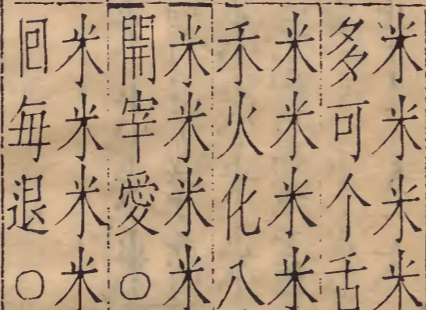 米米米米
多可个舌
米米米米
禾火化八
米米米米
開宰愛○
米米米米
回每退○